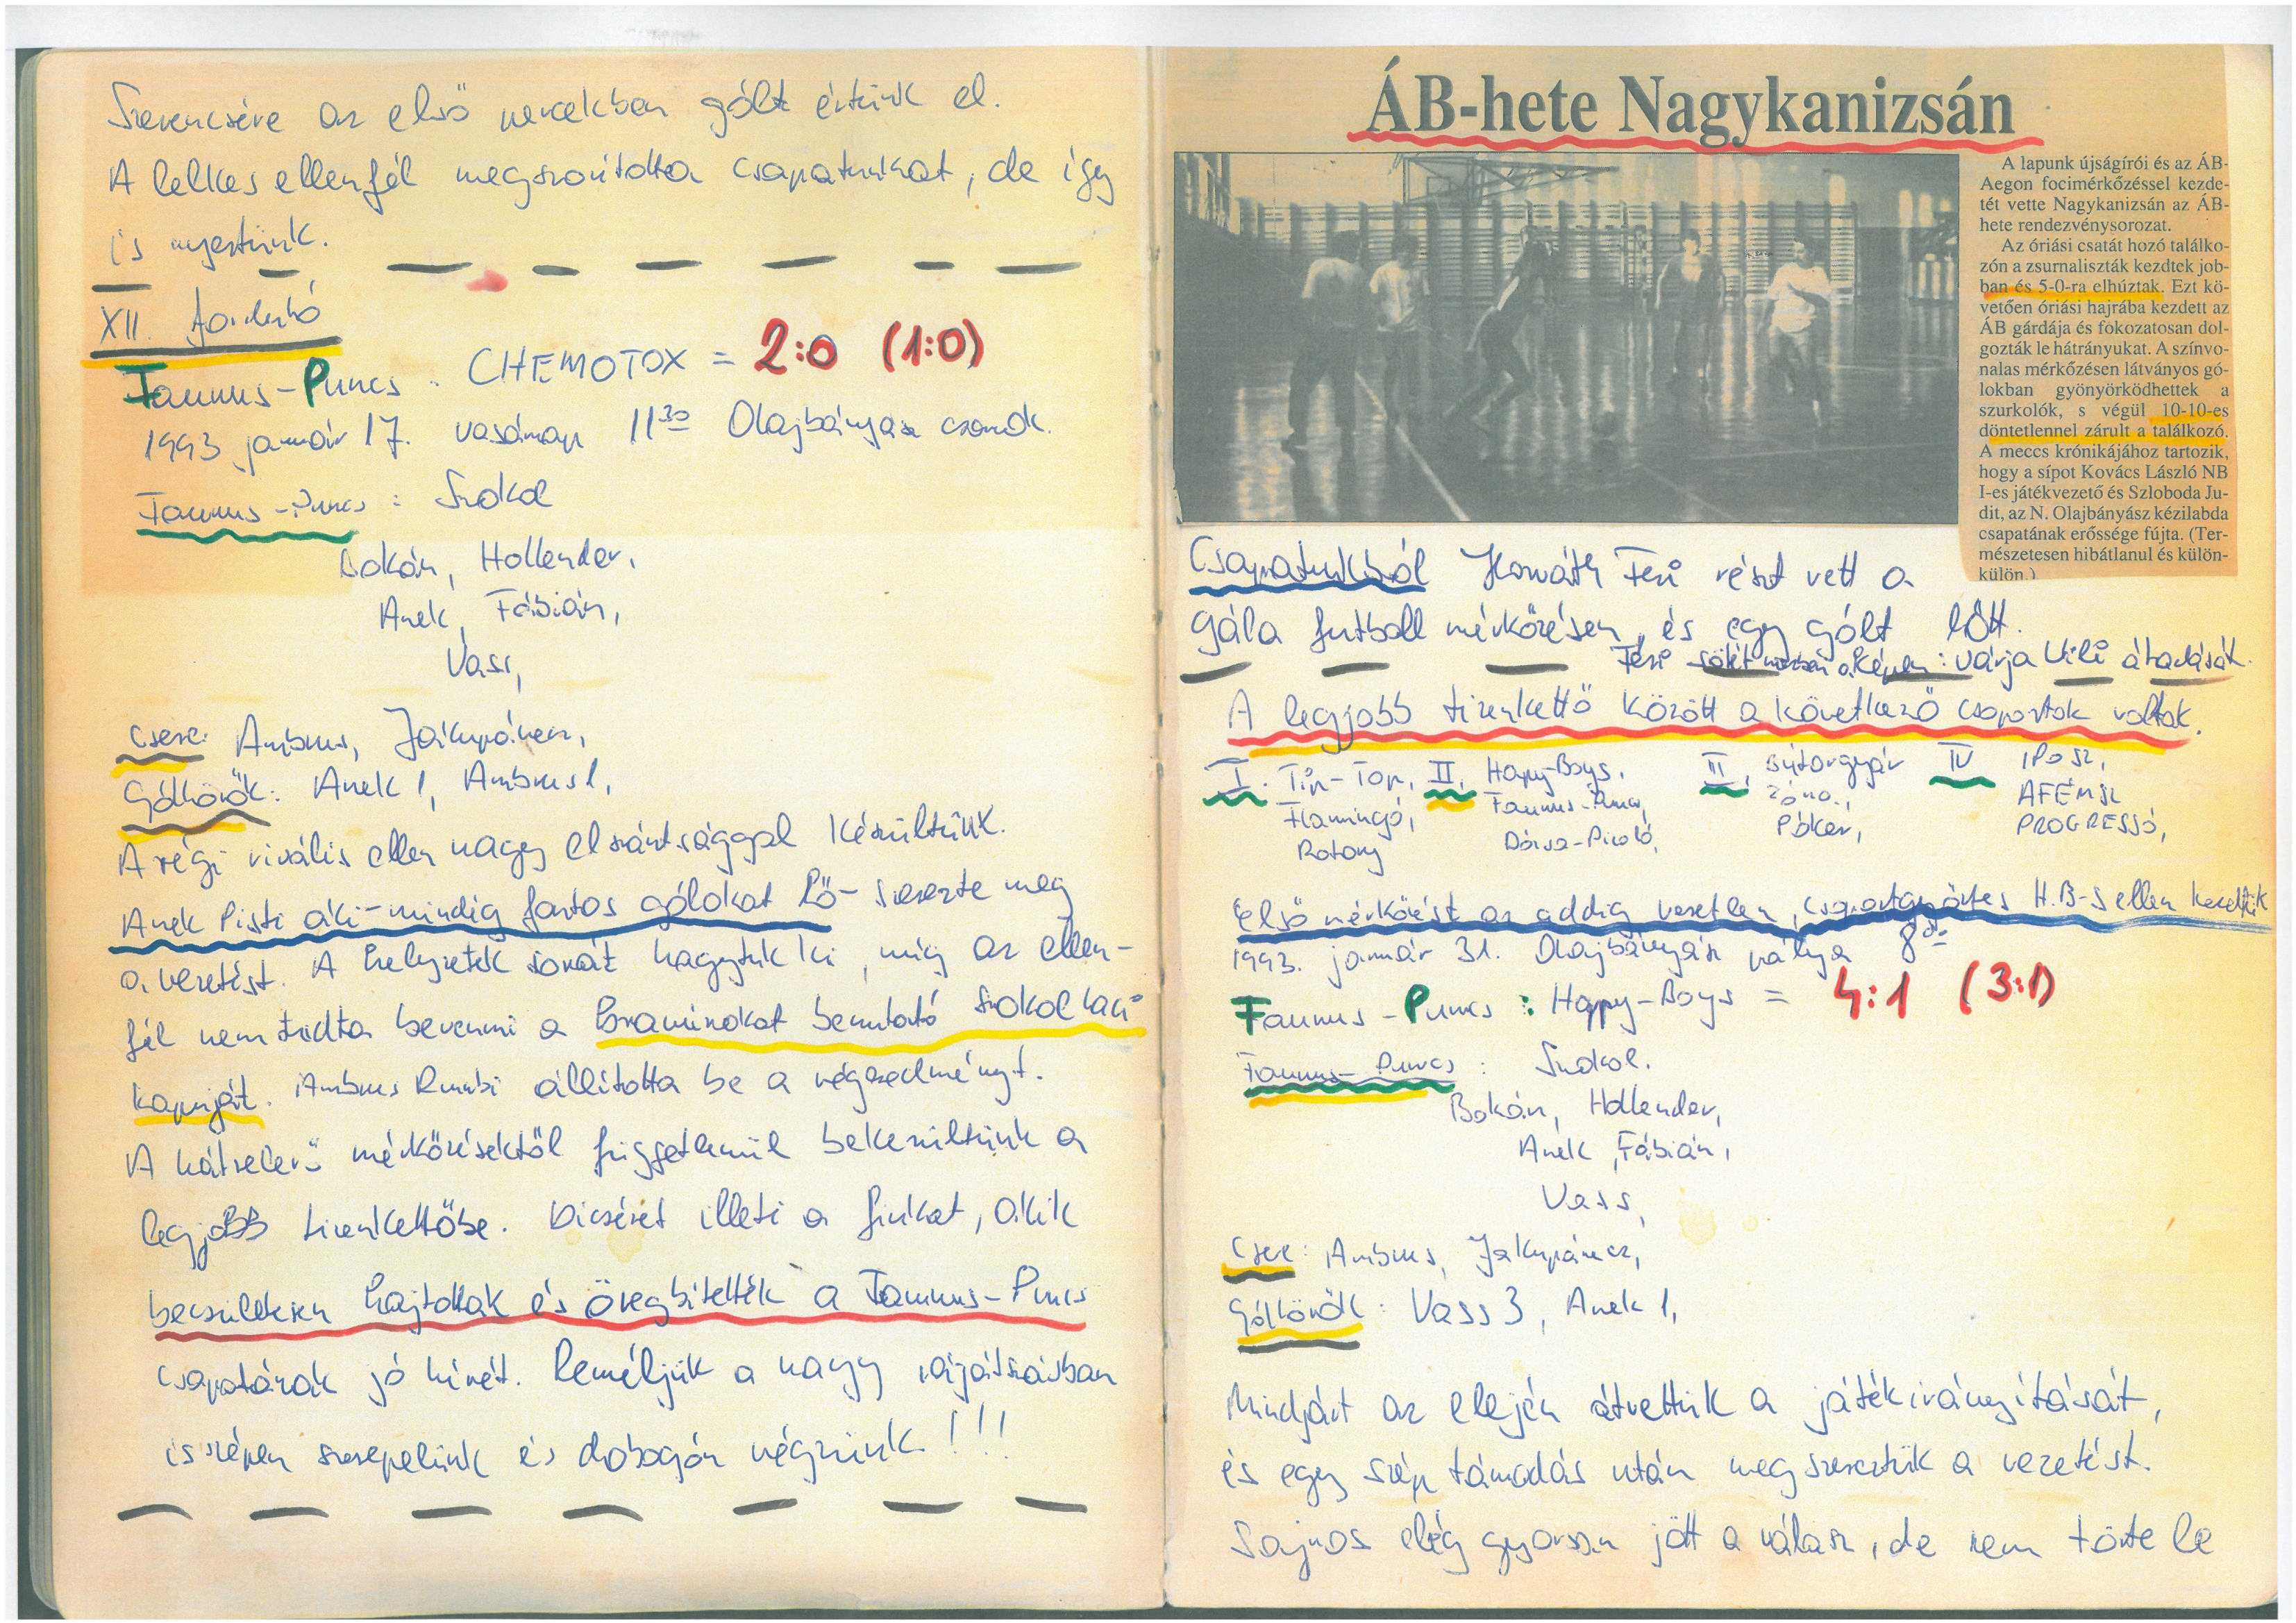 Szerencsére az első percekben gólt értünk el.
A lelkes ellenfél megszorította csapatunkat, de így
is nyertünk.
XII. forduló
Taunus-Puncs - CHEMOTOX = 2:0 (1:0)
1993 január 17. vasárnap 11 30 Olajbányász csarnok.
Taunus-Puncs : Szokol
Bokán, Hollender,
Anek, Fábián,
Vass,
Csere: Ambrus, Jákupánecz,
Góllövők: Anek 1, Ambrus 1,
A régi rivális ellen nagy elszántsággal készültünk.
Anek Pisti aki-mindig fontos gólokat lő- szerezte meg
a vezetést. A helyzetek sorát hagytuk ki, míg az ellen-
fél nem tudta bevenni a bravúrokat bemutató Szokol Laci
kapuját. Ambrus állította be a végeredményt.
A hátralevő mérkőzésektől függetlenül bekerültünk a
legjobb tizenkettőbe. Dicséret illeti a fiúkat, akik
becsületesen hajtottak és öregbítették a Taunus-Puncs
csapatának jó hírét. Reméljük a nagy rájátszásban
is szépen szerepelünk és dobogón végzünk!!!
ÁB-hete Nagykanizsán
A lapunk újságírói és az ÁB-
Aegon focimérkőzéssel kezde-
tét vette Nagykanizsán az ÁB-
hete rendezvénysorozat.
Az óriási csatát hozó találko-
zón a zsurnaliszták kezdtek job-
ban és 5-0-ra elhúztak. Ezt kö-
vetően óriási hajrába kezdett az
ÁB gárdája és fokozatosan dol-
gozták le hátrányukat. A színvo-
nalas mérkőzésen látványos gó-
lokban gyönyörködhettek a
szurkolók, s végül 10-10-es
döntetlennel zárult a találkozó.
A meccs krónikájához tartozik,
hogy a sípot Kovács László NB
I-es játékvezető és Szloboda Ju-
dit, az N. Olajbányász kézilabda
csapatának erőssége fújta. (Ter-
mészetesen hibátlanul és külön-
külön.)
Csapatunkból Horváth Feri részt vett a
gála futball mérkőzésen, és egy gólt lőtt.
Feri sötét mezben a képen: várja Vili átadását.
A legjobb tizenkettő között a következő csoportok voltak.
I. Tip-Top, II. Happy-Boys, III. Bútorgyár IV IPOSZ,
Flamingó, Taunus-Puncs, Zóna, AFÉMSZ
Rotary Dózsa-Picoló, Póker, PROGRESSÓ,
Első mérkőzést az addig veretlen, csoportgyőztes H.B-s ellen kezdtük
1993. január 31. Olajbányász pálya 8
Taunus-Puncs : Happy-Boys = 4:1 (3:1)
Taunus-Puncs : Szokol.
Bokán, Hollender,
Anek, Fábián,
Vass,
Csere: Ambrus, Jakupánecz,
Góllövők: Vass 3, Anek 1,
Mindjárt az elején átvettük a játék irányítását,
és egy szép támadás után megszereztük a vezetést.
Sajnos elég gyorsan jött a válasz, de nem törte le